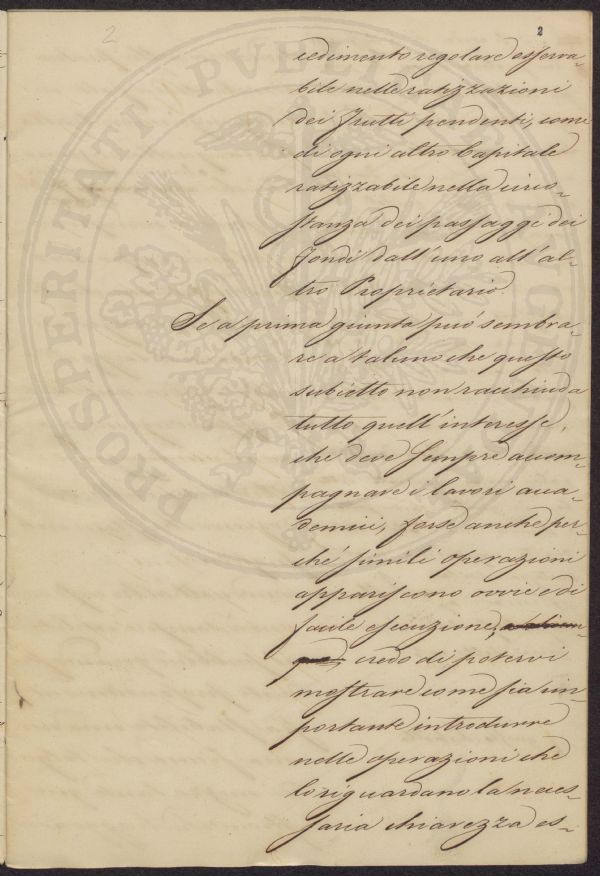 2
2
cedimento regolare osserva-
bile nelle ratizzazioni
dei frutti pendenti, come
di ogni altro Capitale
ratizzabile nella circo-
stanza dei passaggi dei
fondi dall'uno all'al-
tro Proprietario.
Se a prima giunta può sembra-
re a taluno che questo
subietto non racchiuda
tutto quell'interesse,
che deve sempre accom-
pagnare i lavori acca-
demici, forse anche per-
ché simili operazioni
appariscono ovvie e di
facile esecuzione,
credo di potervi
mostrare come sia im-
portante introdurre
nelle operazioni che
lo riguardano la neces-
saria chiarezza es-
PROSPERITATI PVBLICAE